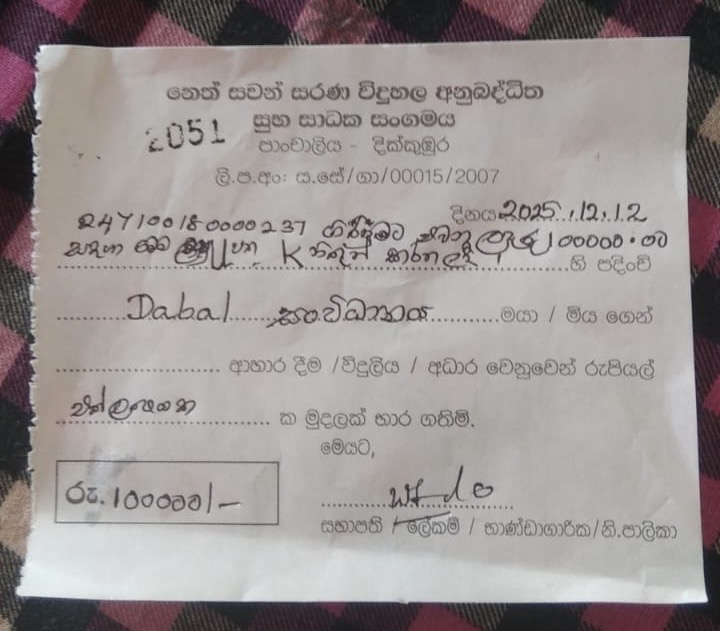 නෙත් සවන් සරණ විදුහල අනුබද්ධිත
සුභ සාධක සංගමය
2051
පාංචාලිය - දික්කුඹුර
ලි.ප.අං: ය.සේ/ගා/00015/2007
දිනය 2025.12.12
247100180000237 ගිරිමට පවතු ලැබූ 100000.00
සඳහා මෙම K නිකුත් කරනලදී
හි පදිංචි
Dabal සංවිධානය මයා / මිය ගෙන්
ආහාර දීම /විදුලිය / අධාර වෙනුවෙන් රුපියල්
එක්ලක්ෂයක ක මුදලක් භාර ගතිමි.
මෙයට,
රු. 100000/-
සභාපති / ලේකම් / භාණ්ඩාගාරික/නි.පාලිකා